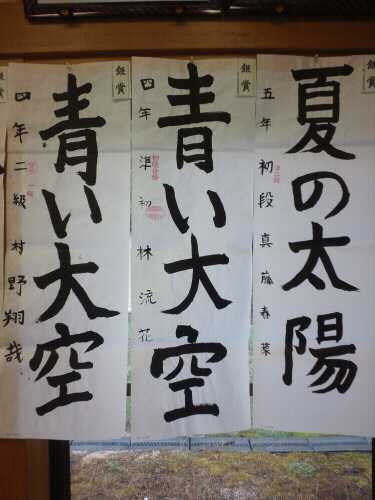 銀賞
夏の太陽
五年 初段 真藤春菜
銀賞
青い大空
四年 準初 林流花
銀賞
青い大空
四年 二級 村野翔哉